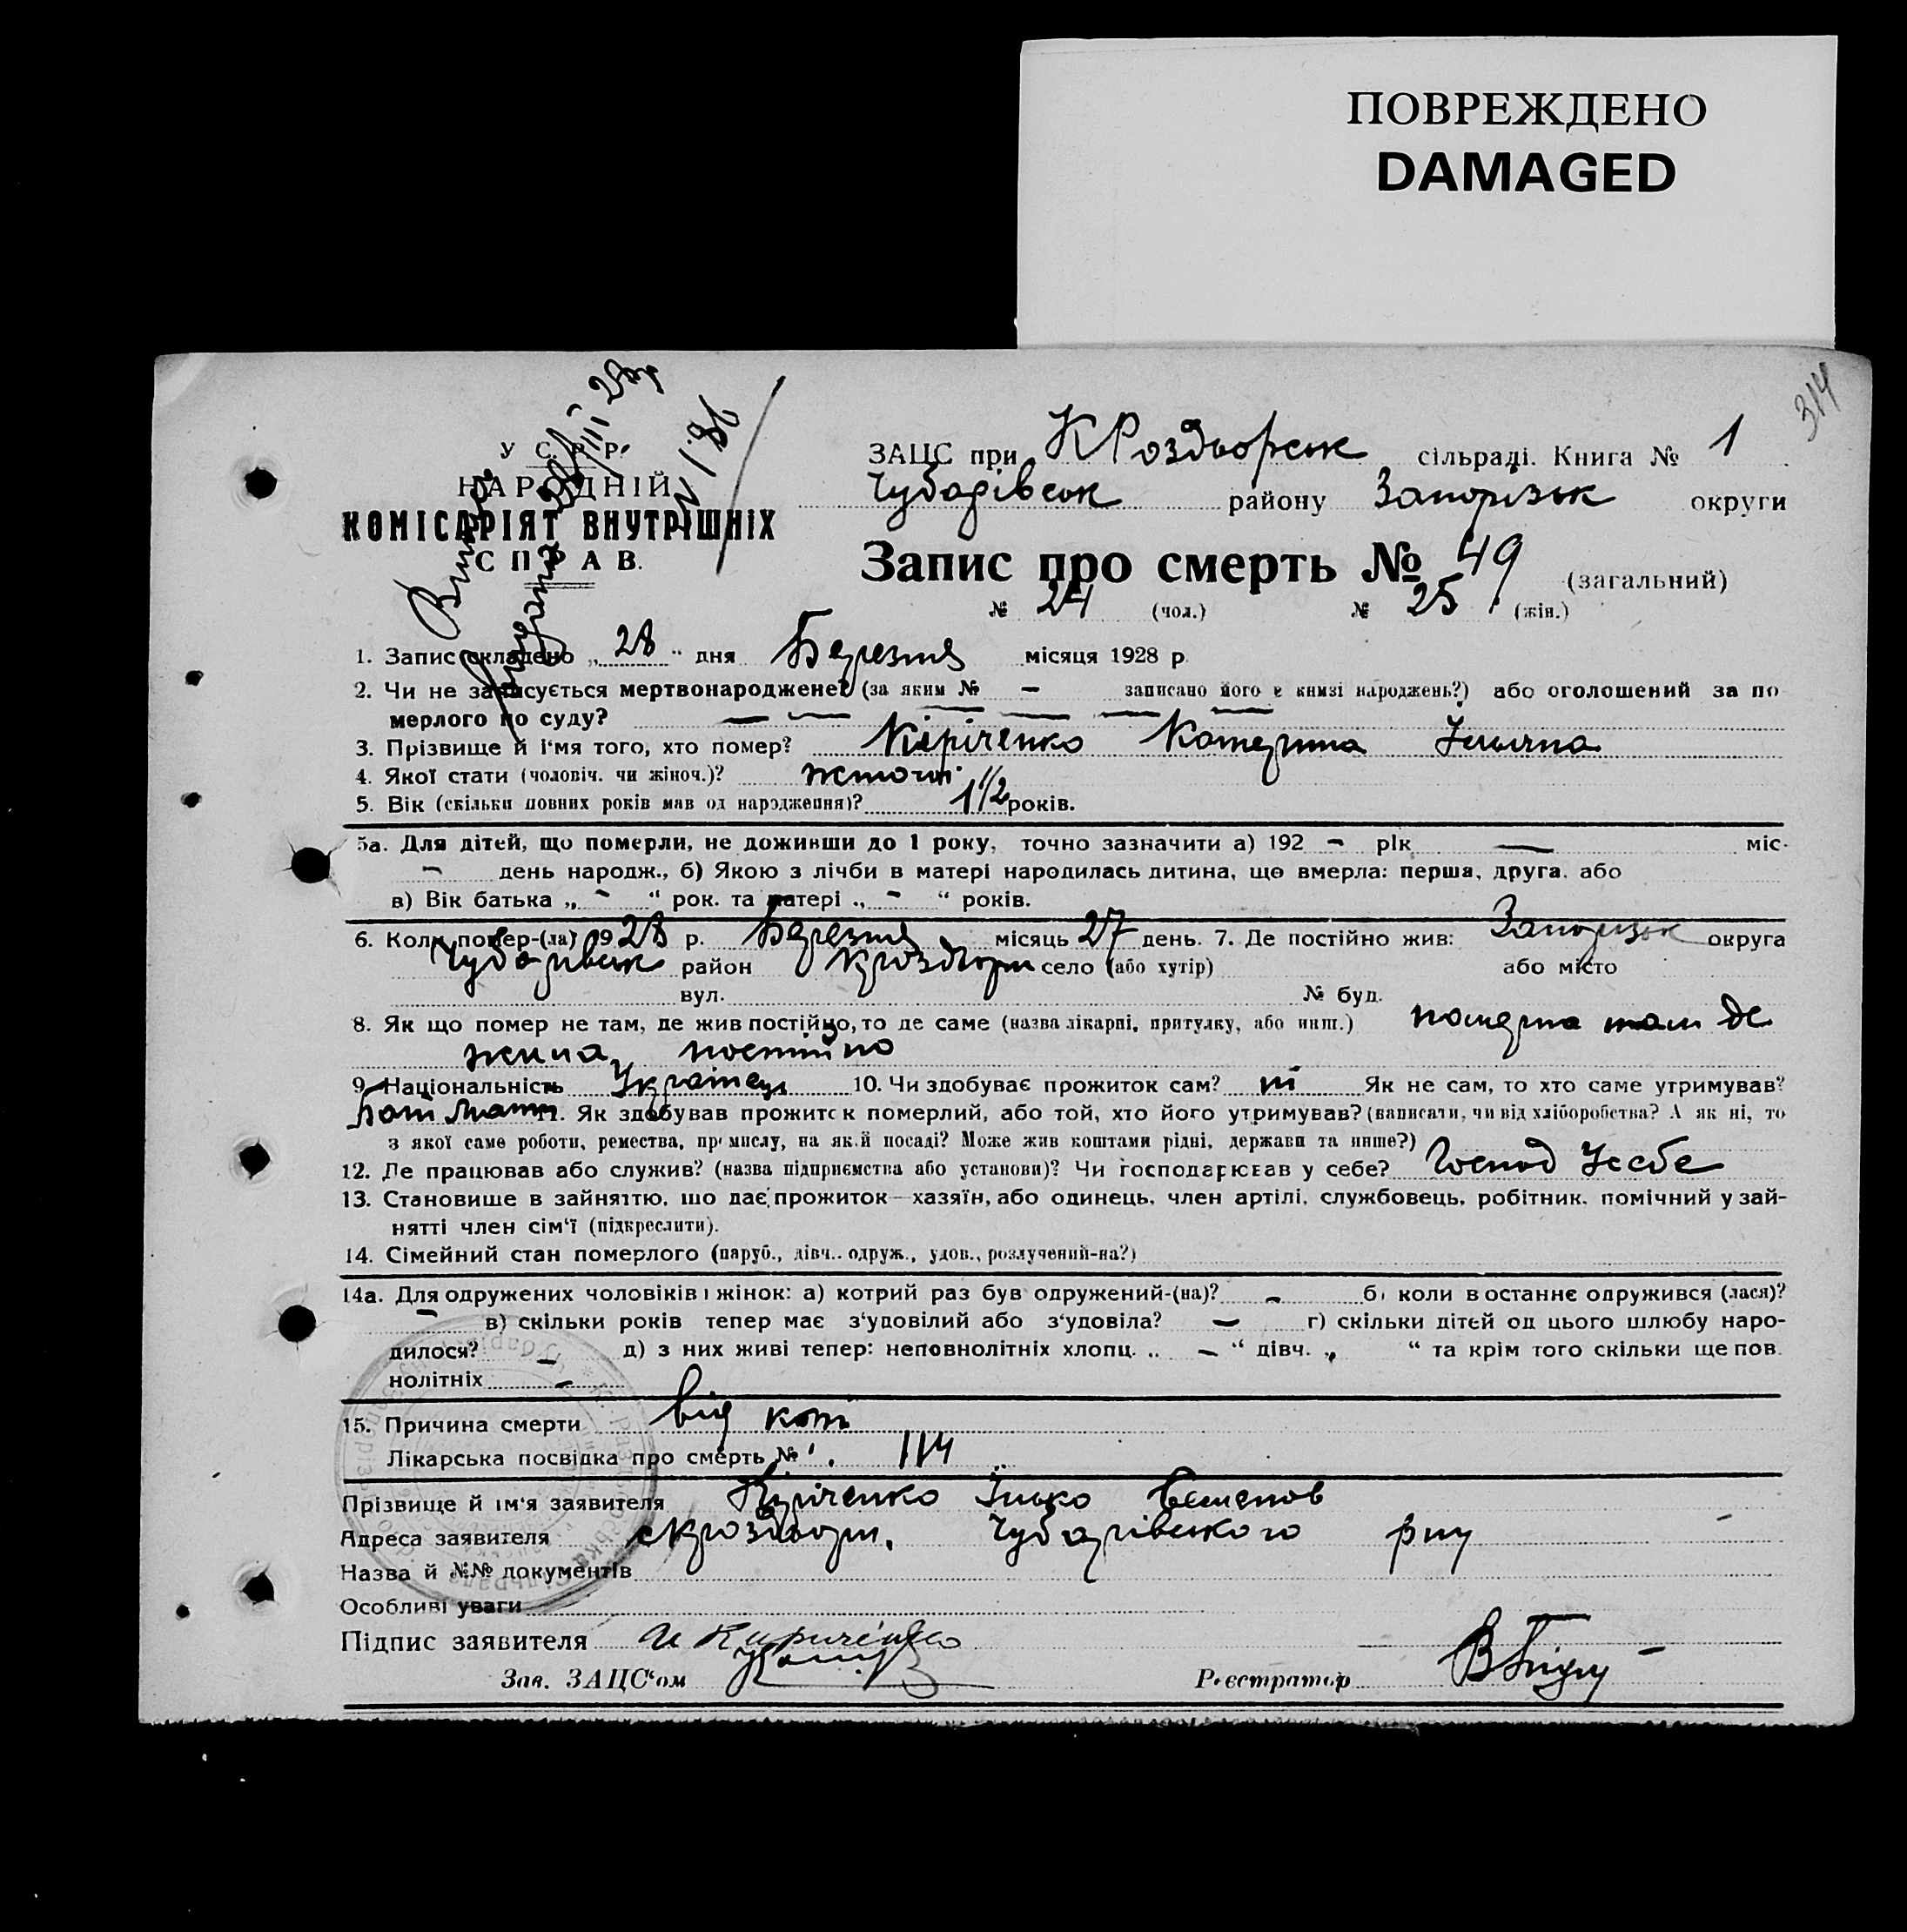 ПОВРЕЖДЕНО
DAMAGED
314
У. С. Р. Р.
НАРОДНІЙ
КОМІСАРІЯТ ВНУТРІШНІХ
СПРАВ.
ЗАЦС при КРоздорськ сільраді. Книга № 1
Чубарівськ району Запорізьк округи
Запис про смерть № 49 (загальний)
№ 24 (чол.) № 25 (жін.)
1. Запис складено „ 28 “ дня Березня місяця 1928 р.
2. Чи не записується мертвонароджене? (за яким № — записано його в книзі народжень?) або оголошений за по
мерлого по суду? — — — — — —
3. Прізвище й ім'я того, хто помер? Кіріченко Катерина
4. Якої стати (чоловіч. чи жіноч.)? жіночи
5. Вік (скільки повних років мав од народження)? 1 1/2 років.
5а. Для дітей, що померли, не доживши до 1 року, точно зазначити а) 192 – рік — міс.
– день народж., б) Якою з лічби в матері народилась дитина, що вмерла: перша, друга. або
в) Вік батька „ – “ рок. та матері „ – “ років.
6. Коли помер-(ла) 1928 р. Березня місяць 27 день. 7. Де постійно жив: Запорізьк округа
Чубарівськ район Кроздори село (або хутір) або місто
вул. № буд.
8. Як що помер не там, де жив постійно, то де саме (назва лікарні, притулку, або инш.) померла там де
жила постійно
9. Національність Українец 10. Чи здобуває прожиток сам? ні Як не сам, то хто саме утримував?
11. Як здобував прожиток померлий, або той, хто його утримував? (написати, чи від хліборобства? А як ні, то
з якої саме роботи, ремества, промислу, на якій посаді? Може жив коштами рідні, держави та инше?)
12. Де працював або служив? (назва підприємства або установи)? Чи господарював у себе? Господ Усебе
13. Становище в зайняттю, що дає прожиток — хазяїн, або одинець, член артілі, службовець, робітник. помічний у зай-
нятті член сім'ї (підкреслити).
14. Сімейний стан померлого (паруб., дівч.. одруж., удов., розлучений-на?)
14а. Для одружених чоловіків і жінок: а) котрий раз був одружений-(на)? – б) коли востаннє одружився (лася)?
– в) скільки років тепер має з'удовілий або з'удовіла? – г) скільки дітей од цього шлюбу наро-
дилося? – д) з них живі тепер: неповнолітніх хлопц. „ – “ дівч. „ “ та крім того скільки ще пов.
нолітніх –
15. Причина смерти від корі
Лікарська посвідка про смерть № 114
Прізвище й ім'я заявителя Кіріченко Ілько Семенов
Адреса заявителя Чубарівського рну
Назва й №№ документів
Особливі уваги
Підпис заявителя И Кириченко
Зав. ЗАЦС'ом
Реєстратор